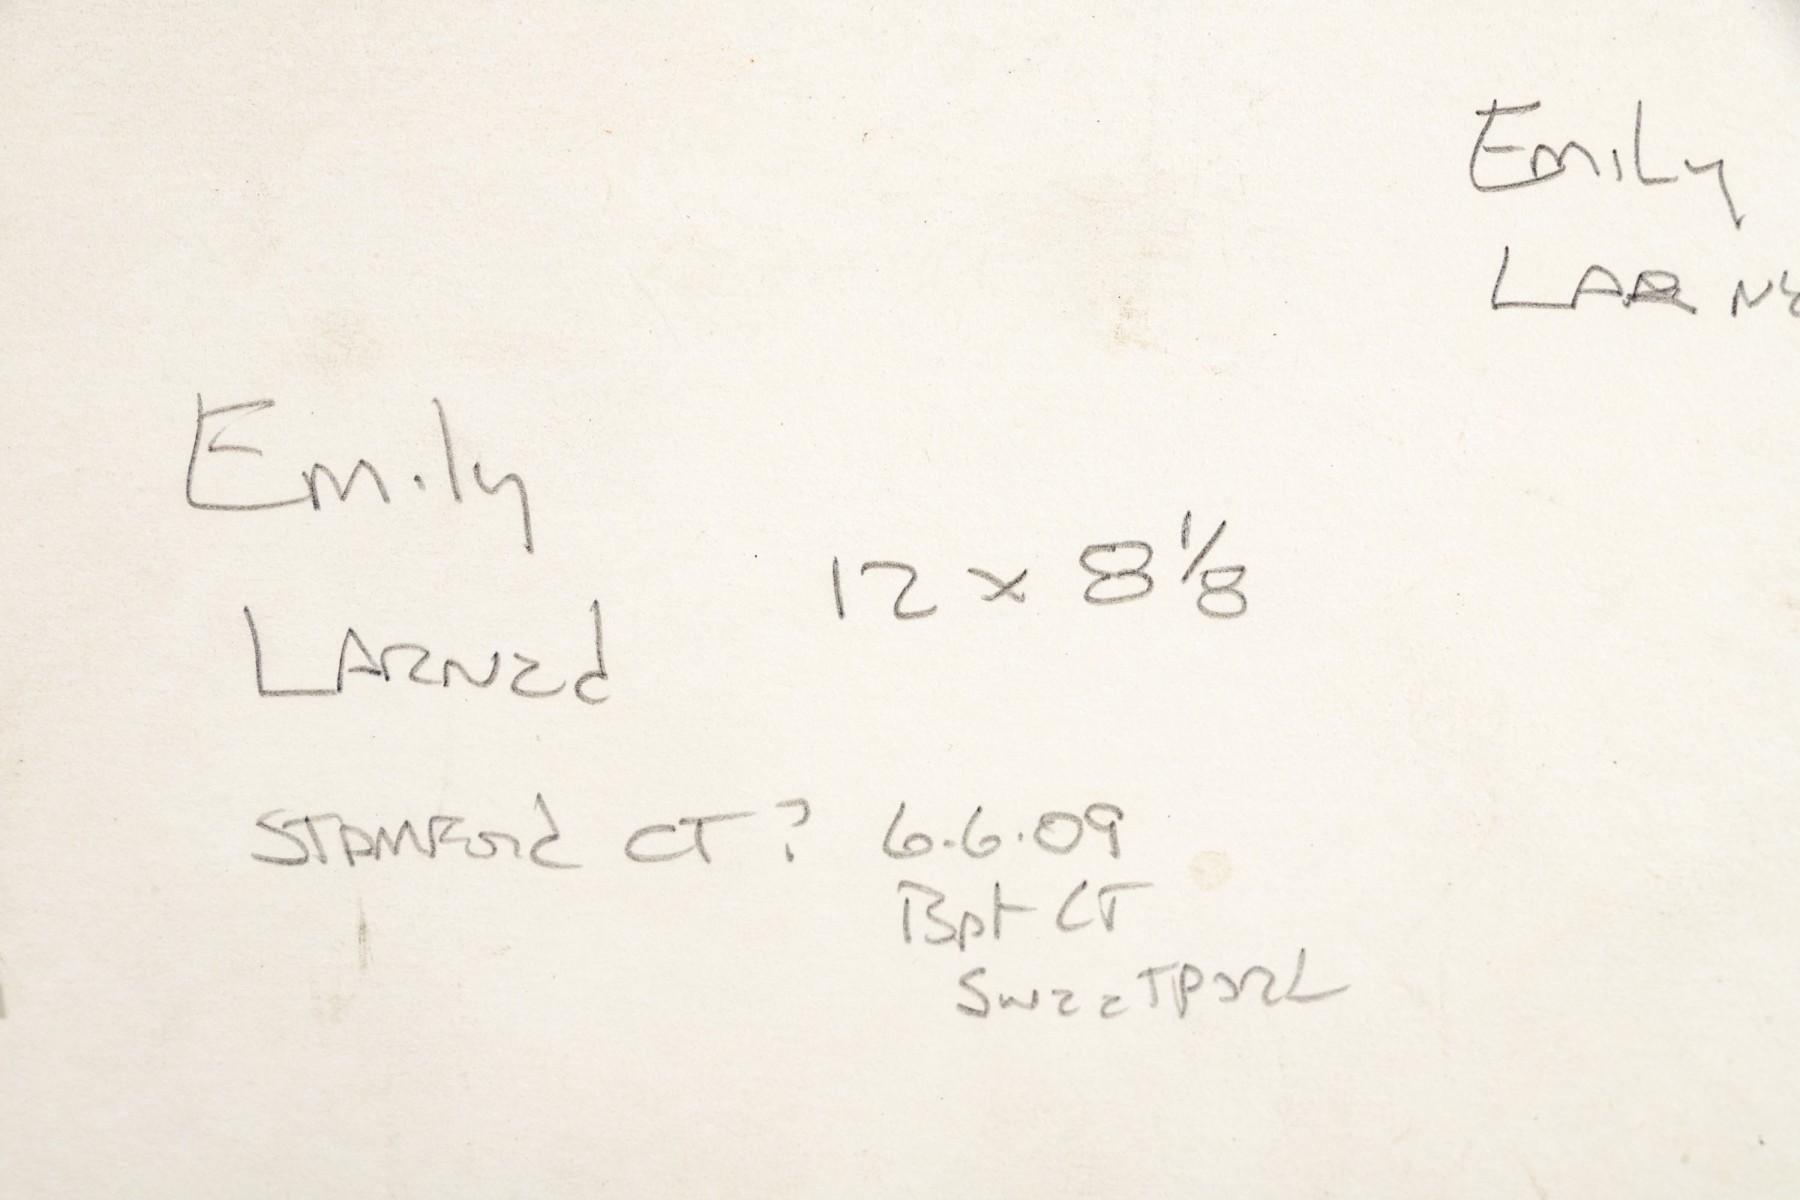 Emily
LARNe
Emily
LARNed
12 x 8 1/8
STAMFord CT? 6.6.09
Bpt CT
SweeTPort